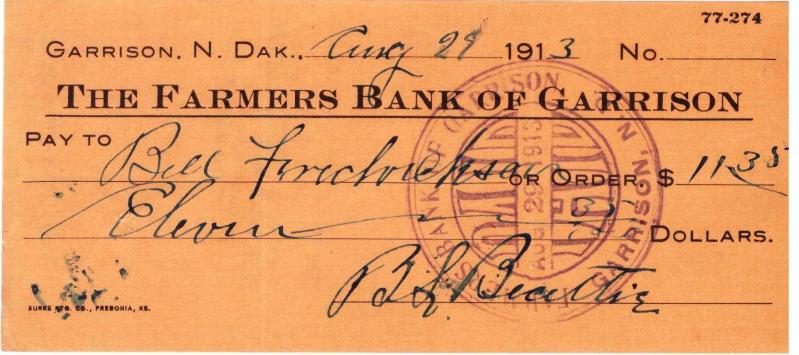 77-274
GARRISON, N. DAK., Aug 29 1913 No.
THE FARMERS BANK OF GARRISON
PAY TO
Bill Fredrickson OR ORDER $ 11.35
Eleven 35 DOLLARS.
FARMERS BANK OF GARRISON
PAID
AUG 29 1913
GARRISON, N.D.
B L Beattie
BURKE MFG. CO., FREDONIA, KS.